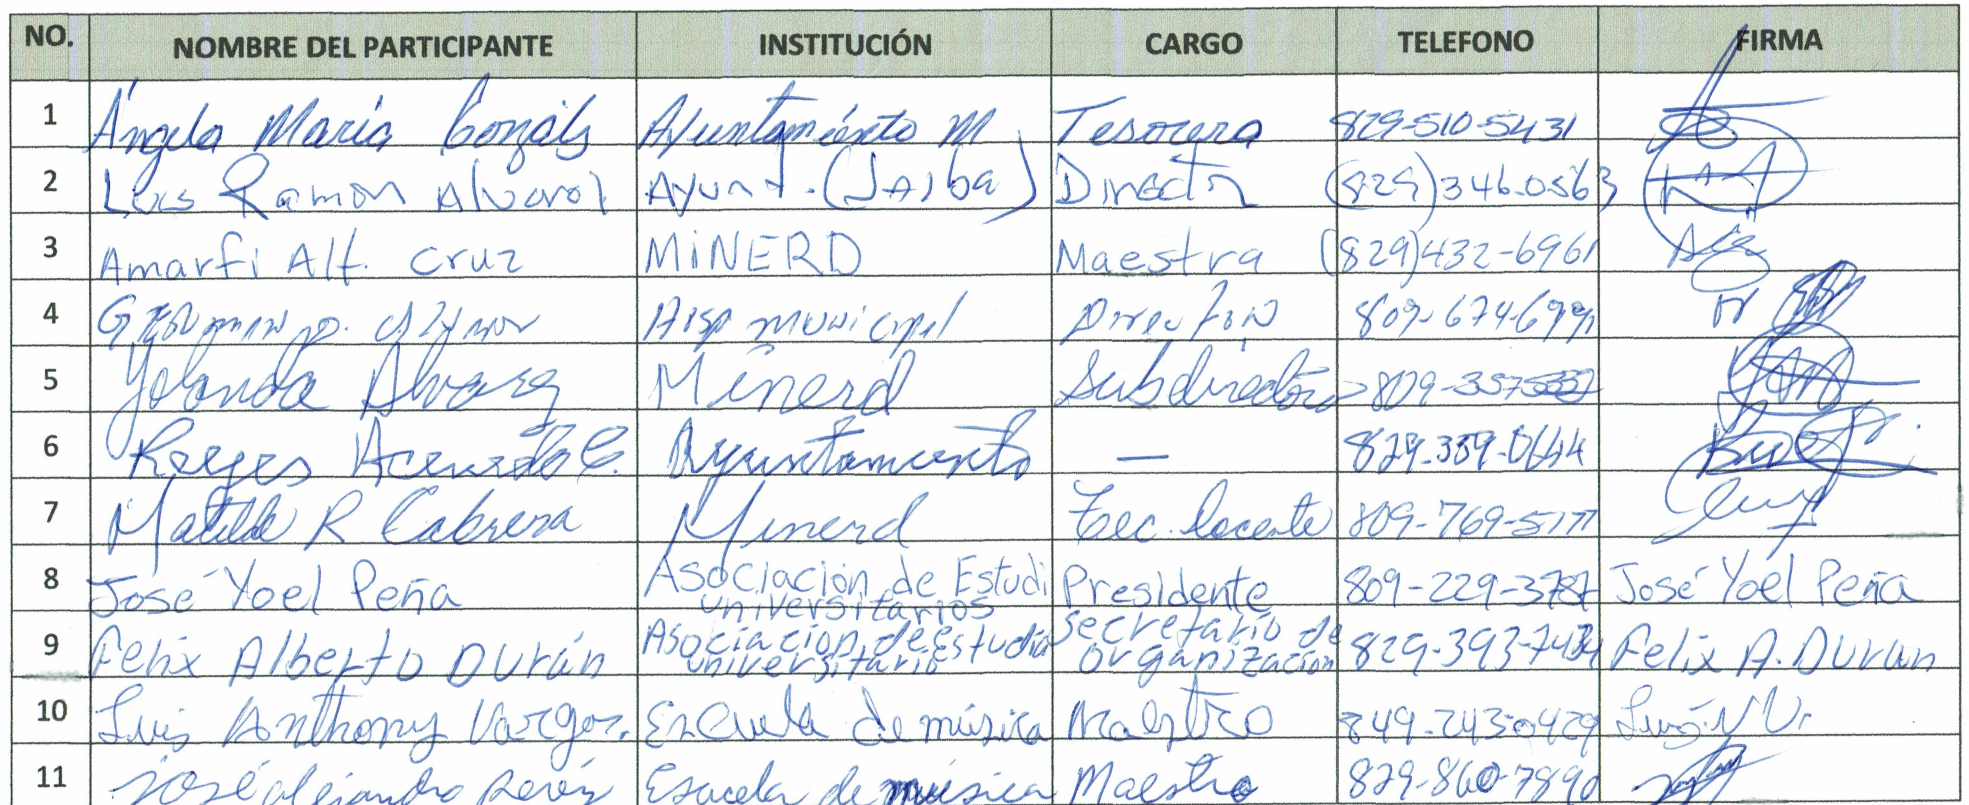 NO. NOMBRE DEL PARTICIPANTE INSTITUCIÓN CARGO TELEFONO FIRMA
1 Ángela María Gonzáls Ayuntamiento M Tesorera 829-510-5431
2 Luis Ramon Alvarez Ayunt. (Jaiba) Director (829)346-0563
3 Amarfi Alt. Cruz MiNERD Maestra (829)432-6961
4 municipal Director 809-674-6991
5 Yolanda Alvarez Minerd Subdirectora 809-
6 Reyes Acevedo C. Ayuntamiento — 829-339-0644
7 Matilde R Cabrera Minerd Tec. Docente 809-769-5177
8 José Yoel Peña Asociación de Estudi Presidente 809-229-3787 José Yoel Peña
universitarios
9 Felix Alberto Durán Asociacion de estudia secretario de 829-393-7434 Felix A. Duran
universitario organización
10 Luis Anthony Vargas. Escuela de música Maestro 849-243-0429
11 José alejandro Perez Escuela de música Maestro 829-860-7890